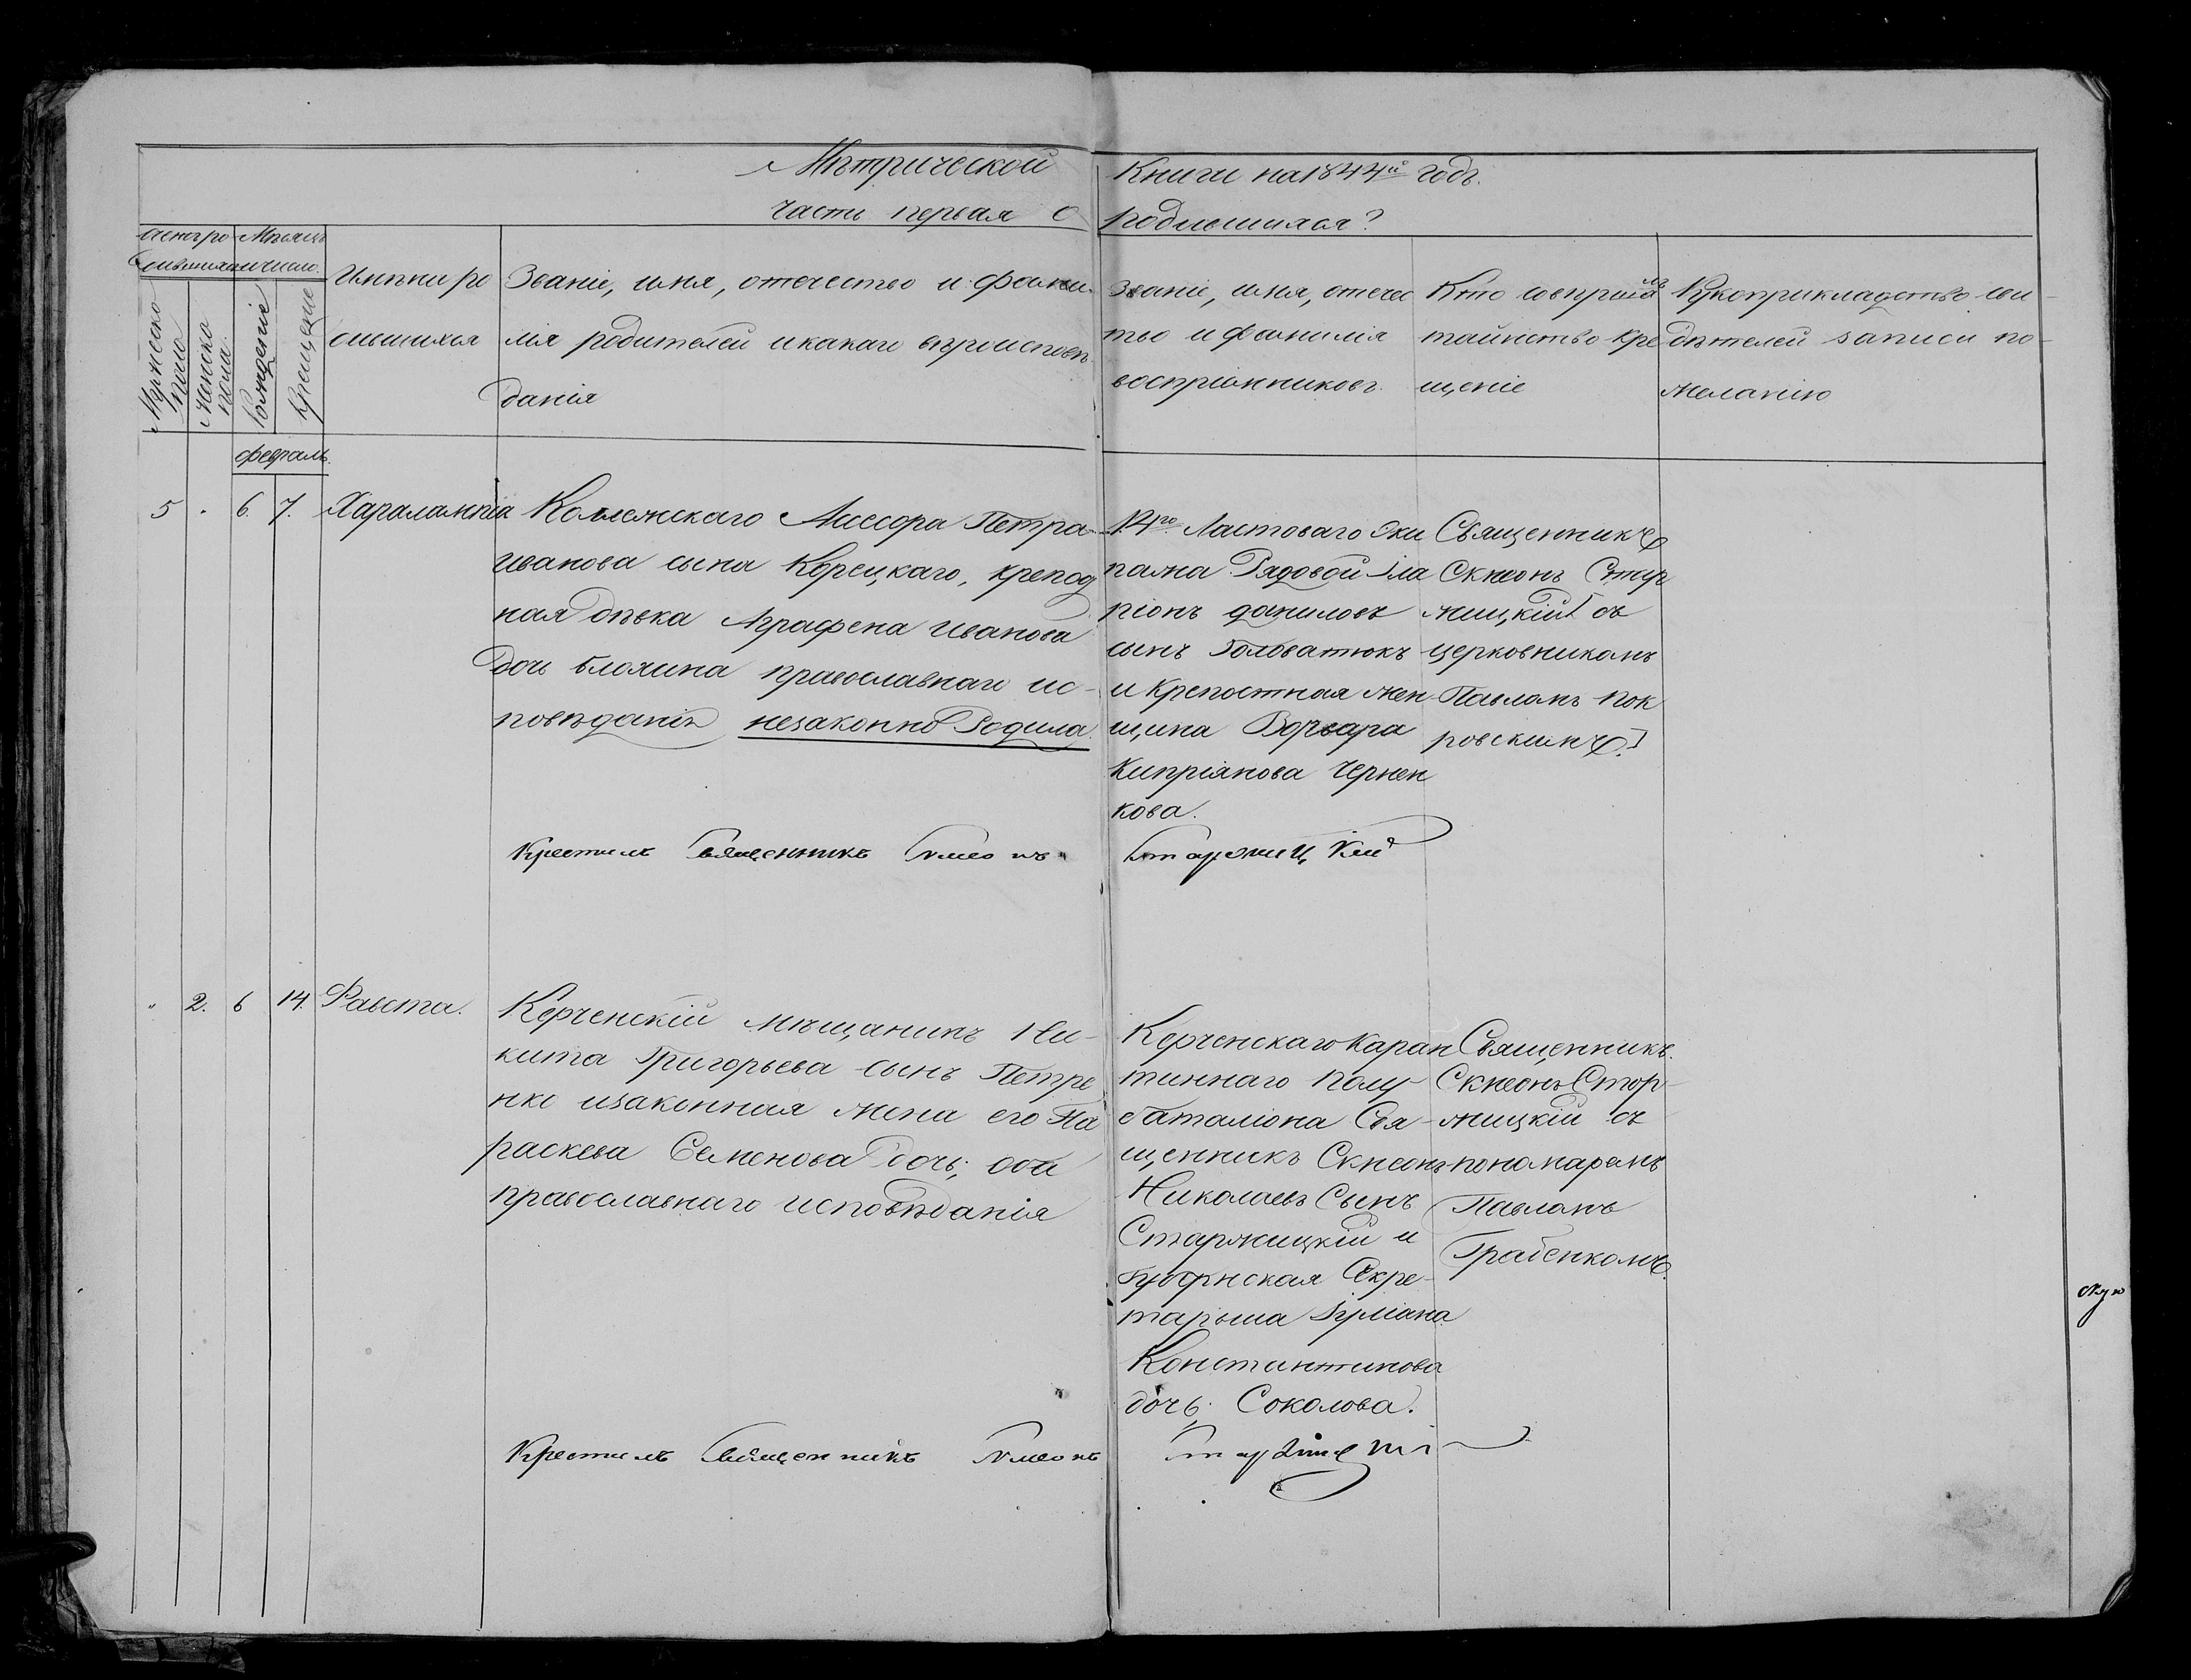 Мѣтрической Книги на 1844й годъ.
часть первая о родившихся?
Мѣсяцъ
и число.
Мужеска
пола
Женска
пола.
Рожденіе
Крещеніе
Имѣни ро
сившихся
Званіе, имя, отечество и фами-
лія родителей и какаго вѣроисповѣ-
данія
Званіе, имя, отечес
тво и фамилія
воспріемниковъ.
Кто совершилъ
таинство кре
щеніе
Рукоприкладство сви-
дѣтелей записи по-
желанію
февраль.
5 " 6. 7. Харалампія
Колежскаго Ассесора Петра
Иванова сына Корецкаго, крепод
ная дѣвка Аграфена Иванова
дочь Блохина православнаго ис-
повѣданія незаконно Родила.
14го Ластоваго Эки
пажа Рядовой Ила
ріонъ даниловъ
сынъ Головатюкъ
и крепостная жен-
щина Варвара
Кипріянова Чернен
кова.
Священникъ
Симеонъ Стар
жицкій съ
церковникомъ
Павломъ пок
ровскимъ.
Крестилъ Священникъ Симеонъ Старжицкій
" 2. 6 14. Фавста.
Керченскій мѣщанинъ Ни-
кита Григорьева сынъ Петре
нко изаконная жена его Па
раскева Семенова дочь; оба
православнаго исповѣданія
Керченскаго Каран
тиннаго полу-
баталіона Свя-
щенникъ Симеонъ
Николаевъ Сынъ
Старжицкій и
Губернская Секре-
тарьша Іуліана
Константинова
дочь. Соколова.
Священникъ.
Симеонъ Стар-
жицкій съ
пономаремъ
Павломъ
Грабенкомъ.
Крестилъ Священникъ Симеонъ Старжицкій